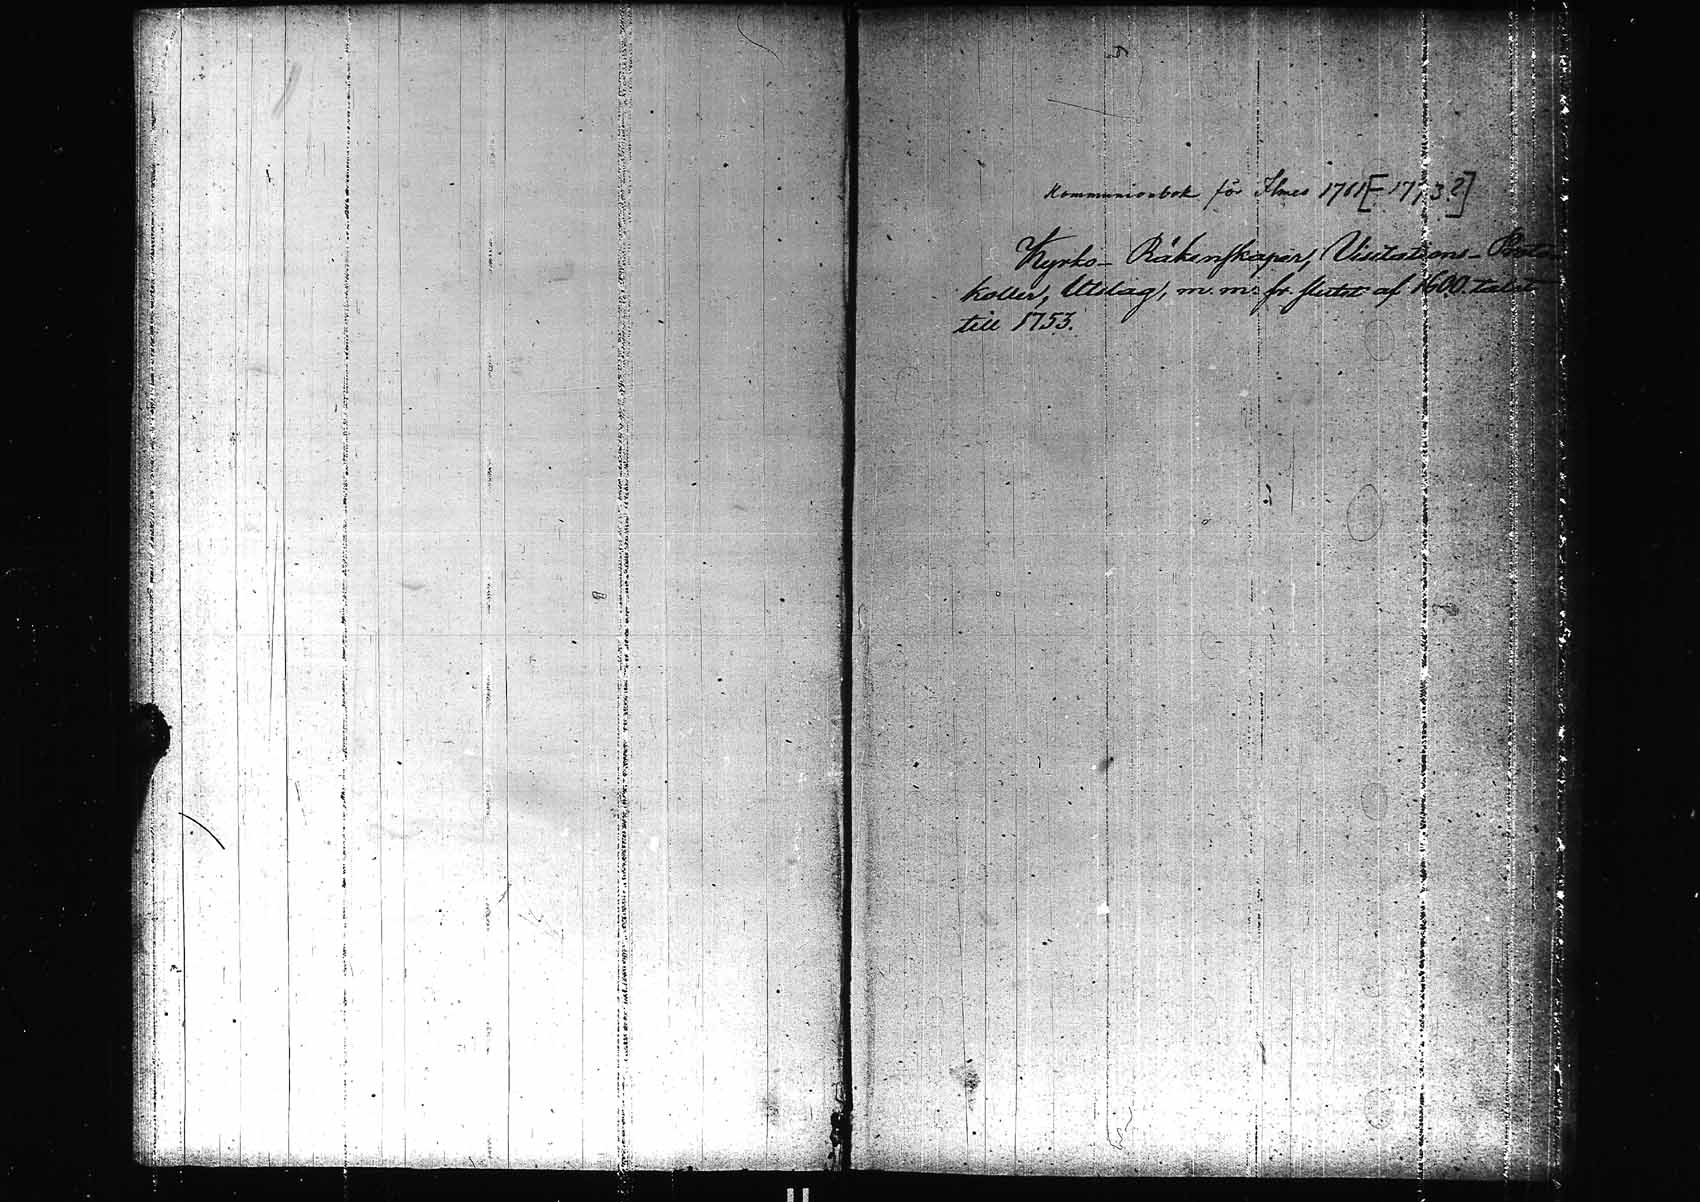 Kommunionbok för 1761[-1773?]
Kyrko- Räkenskaper, Visitations- Proto-
koller, Utdag, m. m. fr. slutet af 1600. talet
till 1753.